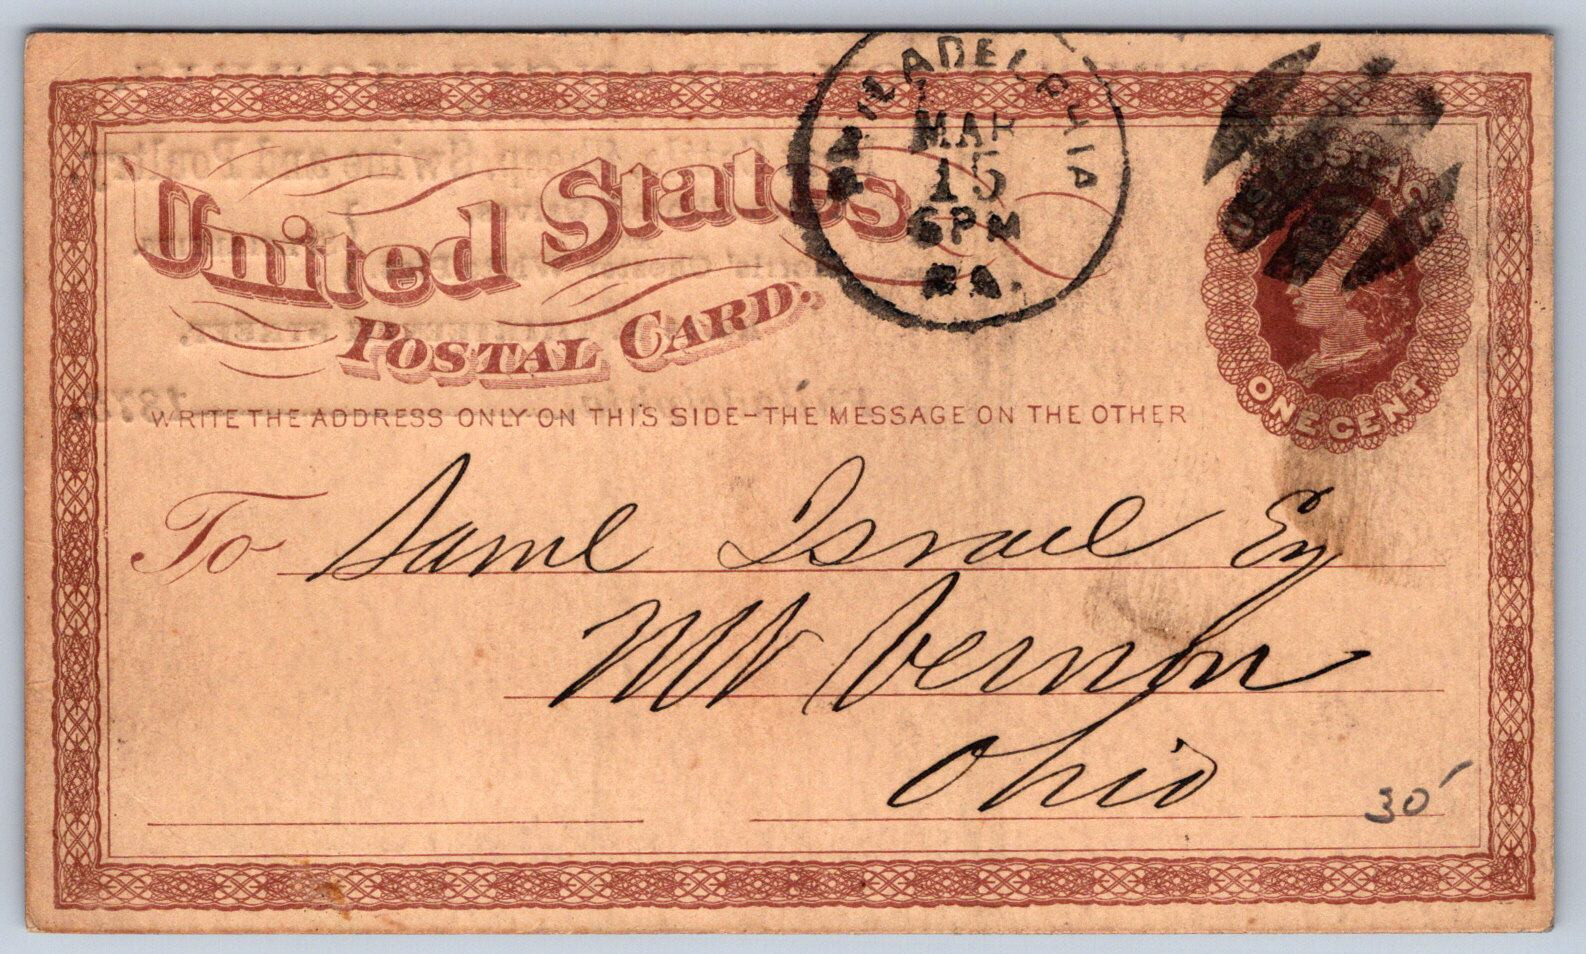 United States
POSTAL CARD.
WRITE THE ADDRESS ONLY ON THIS SIDE-THE MESSAGE ON THE OTHER
PHILADELPHIA
MAR
15
6PM
PA.
U.S. POSTAGE
ONE CENT
To Saml Israel Esq
Mt Vernon
Ohio
30